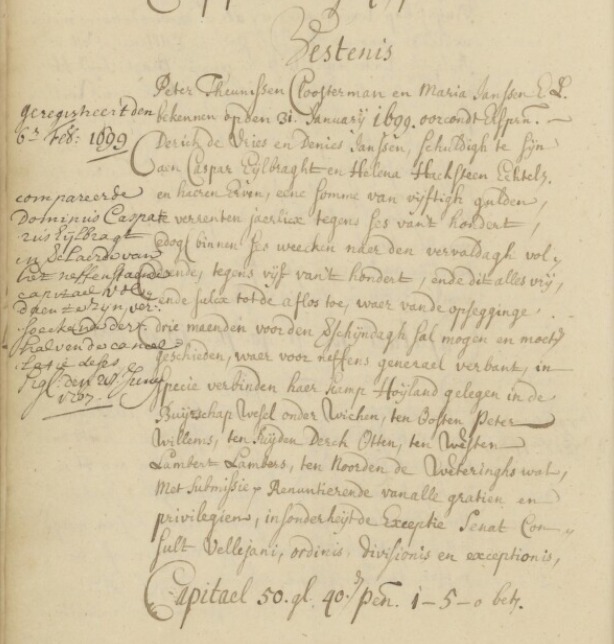 Vestenis
Peter Theunissen Cloosterman en Maria Janssen E.L.
bekennen op den 31. January 1699. oorcondt Erfpn̄.
Derick de Vries en Denies Janssen, schuldigh te sijn
aen Caspar Eylbraght en Helena Hachsteen Echtel.
en haeren Erven, eene somme van vijftigh gulden,
te verrenten jaerlix tegens ses van't hondert,
edogh binnen ses weecken naer den vervaldagh vol,
doende, tegens vijf van't hondert, ende dit alles vrij,
ende sulcx tot de aflos toe, waer van de opsegginge
drie maenden voor den Verschijndagh sal mogen en moet
geschieden, waer voor neffens generael verbant, in
specie verbinden haer kamp Hoyland gelegen in de
Buyrschap Wesel onder Wichen, ten Oosten Peter
Willems, ten Zuyden Derck Otten, ten Westen
Lambert Lambers, ten Noorden de Weteringhs wal,
Met submissie Renuntierende van alle gratien en
privilegien, insonderheyt de Exceptie Senat Con-
sult Vellejani, ordinis, divisionis en exceptionis,
Capitael 50. gl. 40. pen. 1-5-0 bet.
geregistreert den
6n feb: 1699
compareerde
Dominus Caspa
rus Eylbragt
en verclaerde van
het neffenstaende
capitael
daen te zijn, ver
soeckende derhalven de cancel
latie deses
den
1707.